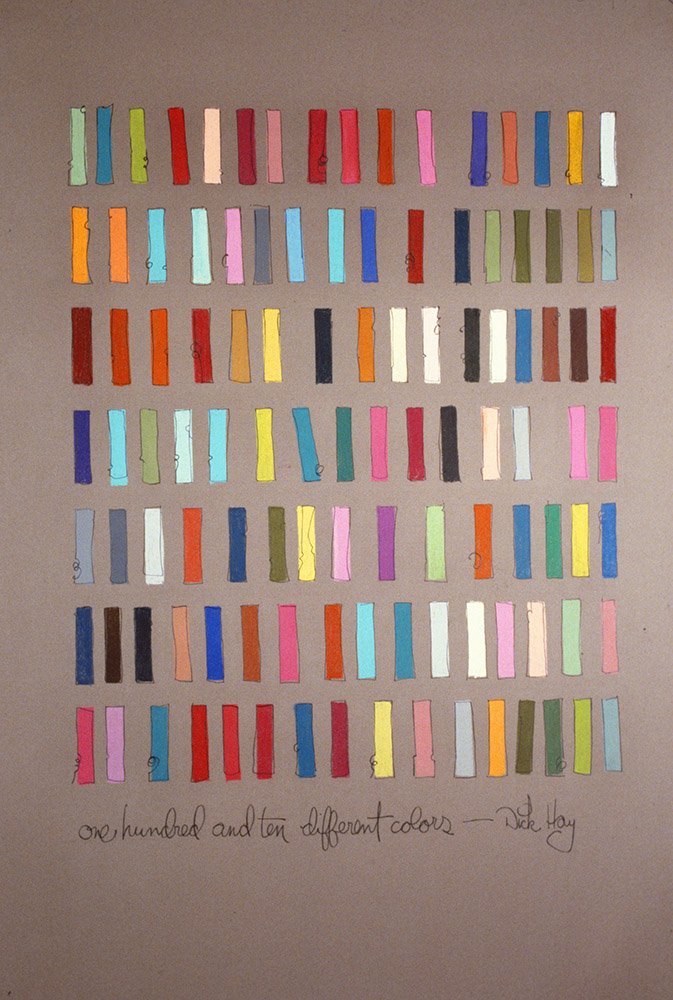 one hundred and ten different colors — Dick Hay